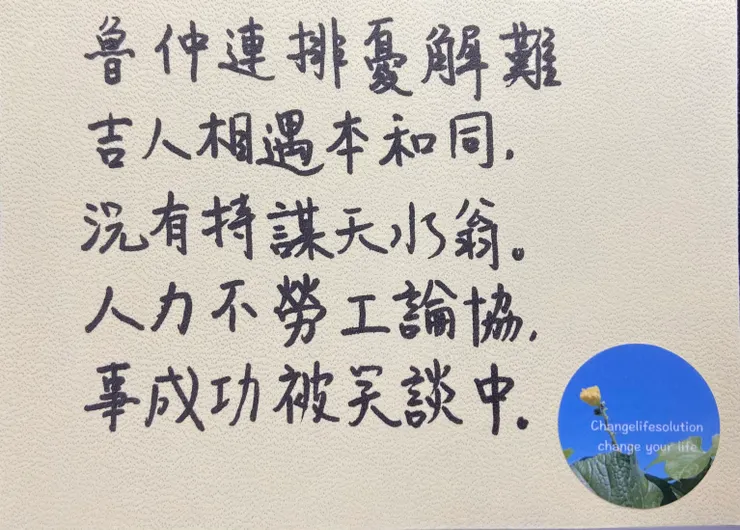 魯仲連排憂解難
吉人相遇本和同,
況有持謀天水翁。
人力不勞工論協,
事成功被笑談中。
Changelifesolution
change your life